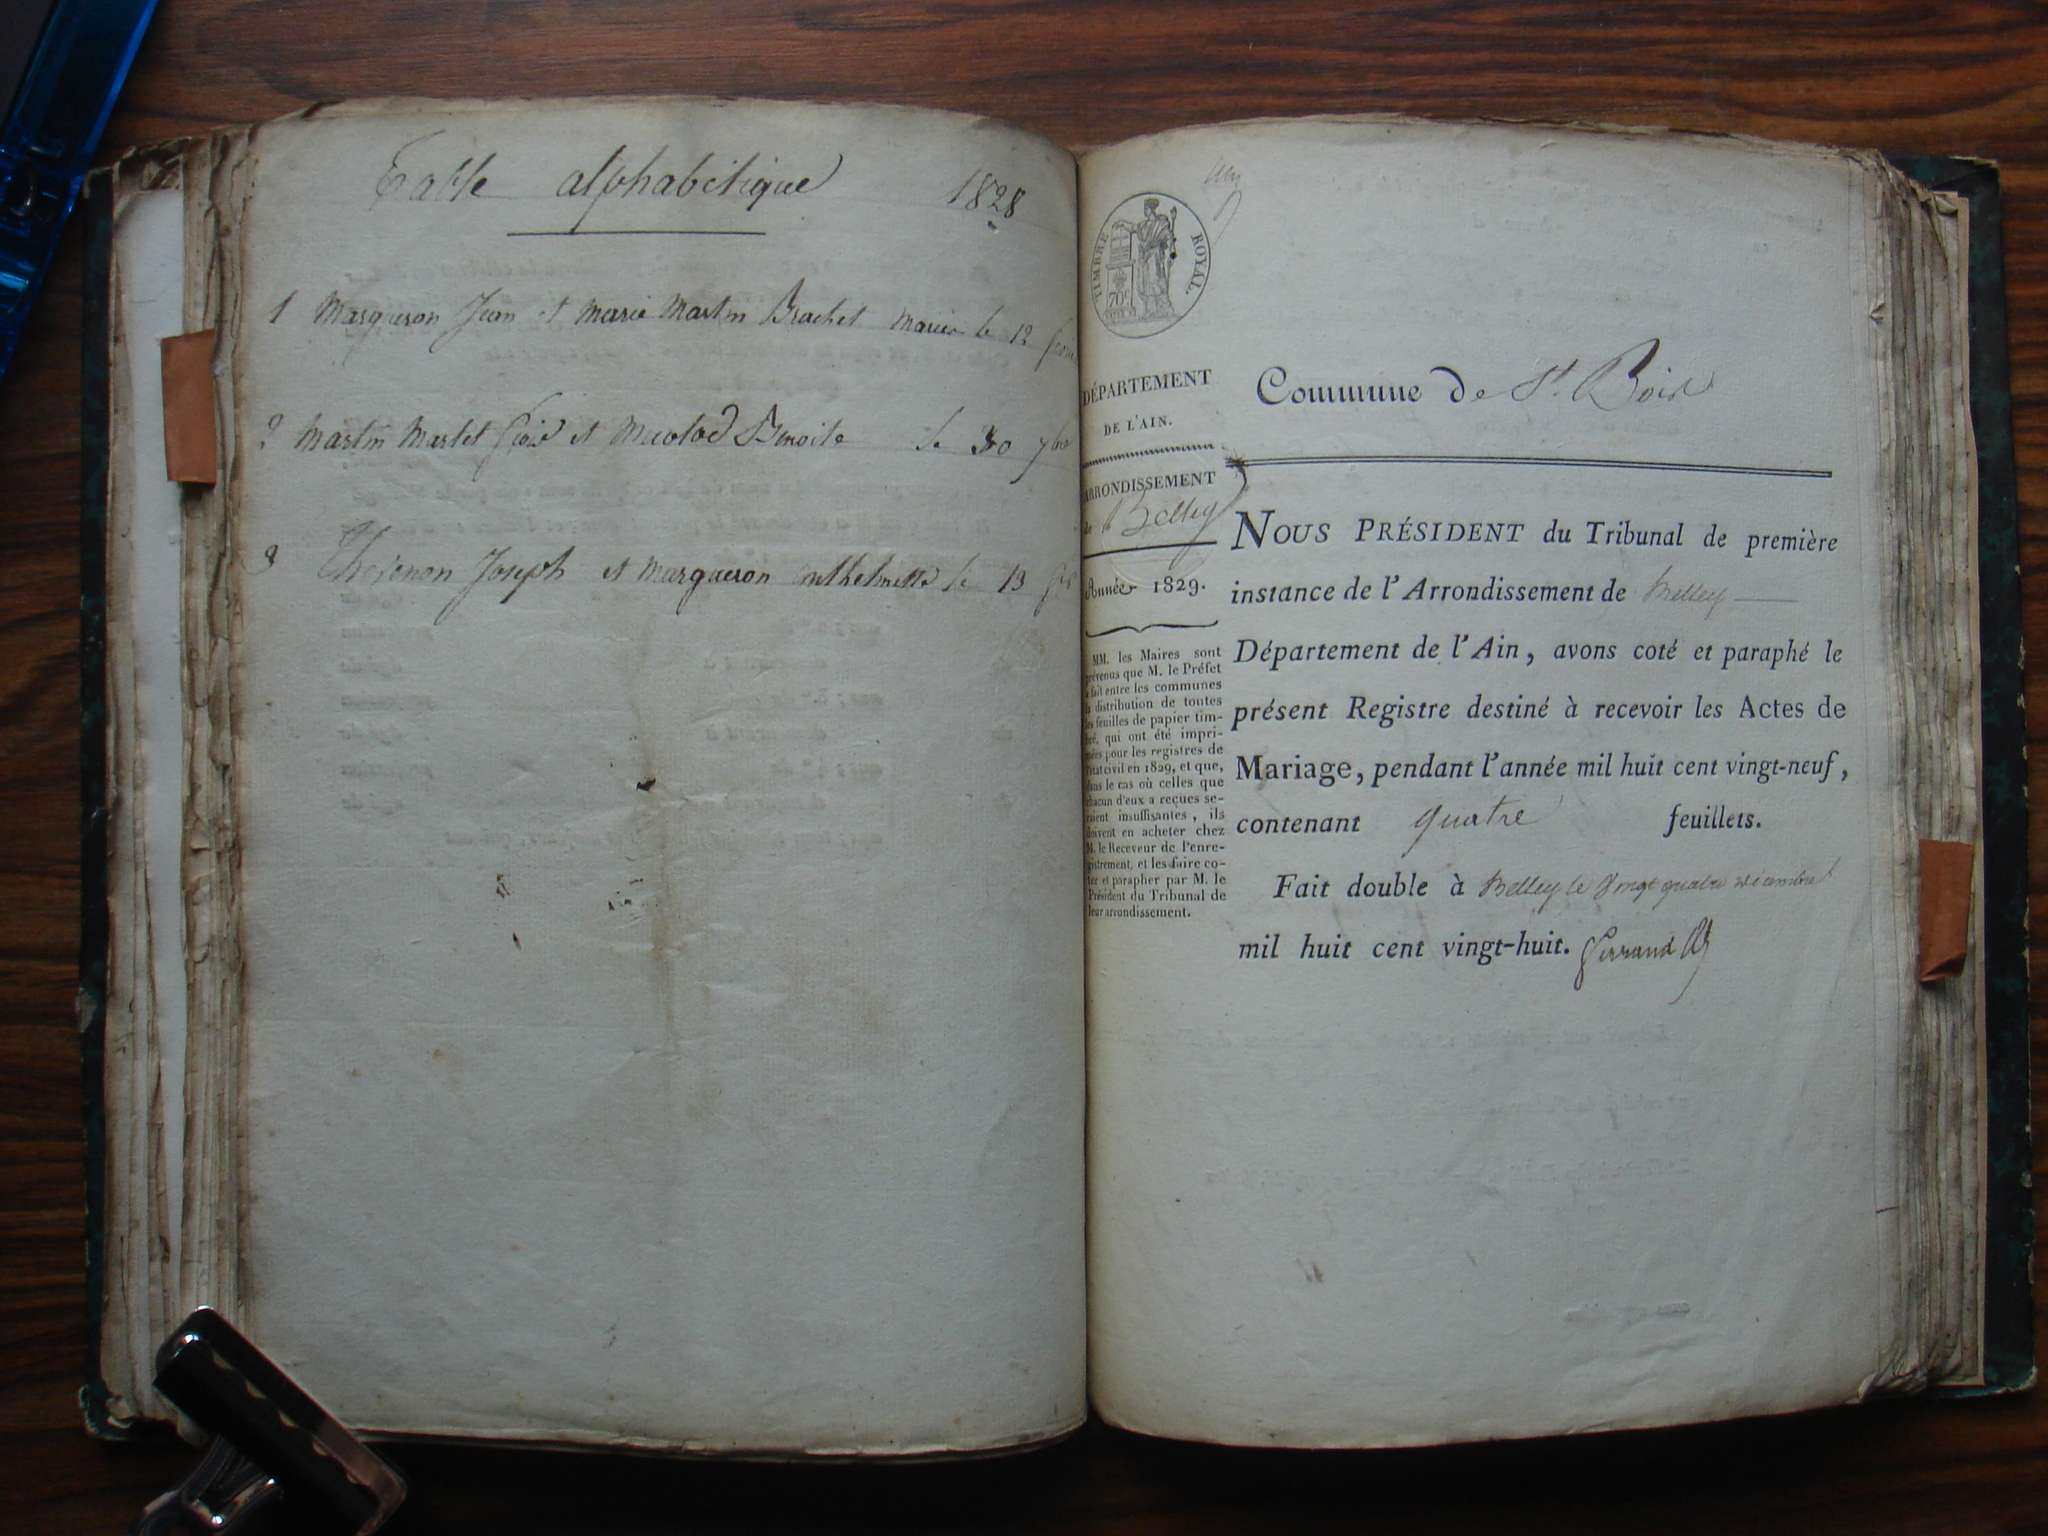 Table alphabétique 1828
1 Marqueron Jean et Marie Martin Brachet mariés le 12
2 Martin Martet et Benoite le 30 7bre
3 Joseph et Marqueron Anthelmette le 13
TIMBRE ROYAL.
70c
DÉPARTEMENT
DE L'AIN.
ARRONDISSEMENT
de Belley
Année 1829.
MM. les Maires sont
prévenus que M. le Préfet
a fait entre les communes
la distribution de toutes
les feuilles de papier tim-
bré, qui ont été impri-
mées pour les registres de
l'état civil en 1829, et que,
dans le cas où celles que
chacun d'eux a reçues se-
raient insuffisantes, ils
doivent en acheter chez
M. le Receveur de l'enre-
gistrement, et les faire co-
ter et parapher par M. le
Président du Tribunal de
leur arrondissement.
Commune de St. Bois
NOUS PRÉSIDENT du Tribunal de première
instance de l'Arrondissement de Belley
Département de l'Ain, avons coté et paraphé le
présent Registre destiné à recevoir les Actes de
Mariage, pendant l'année mil huit cent vingt-neuf,
contenant quatre feuillets.
Fait double à Belley le vingt quatre décembre
mil huit cent vingt-huit.